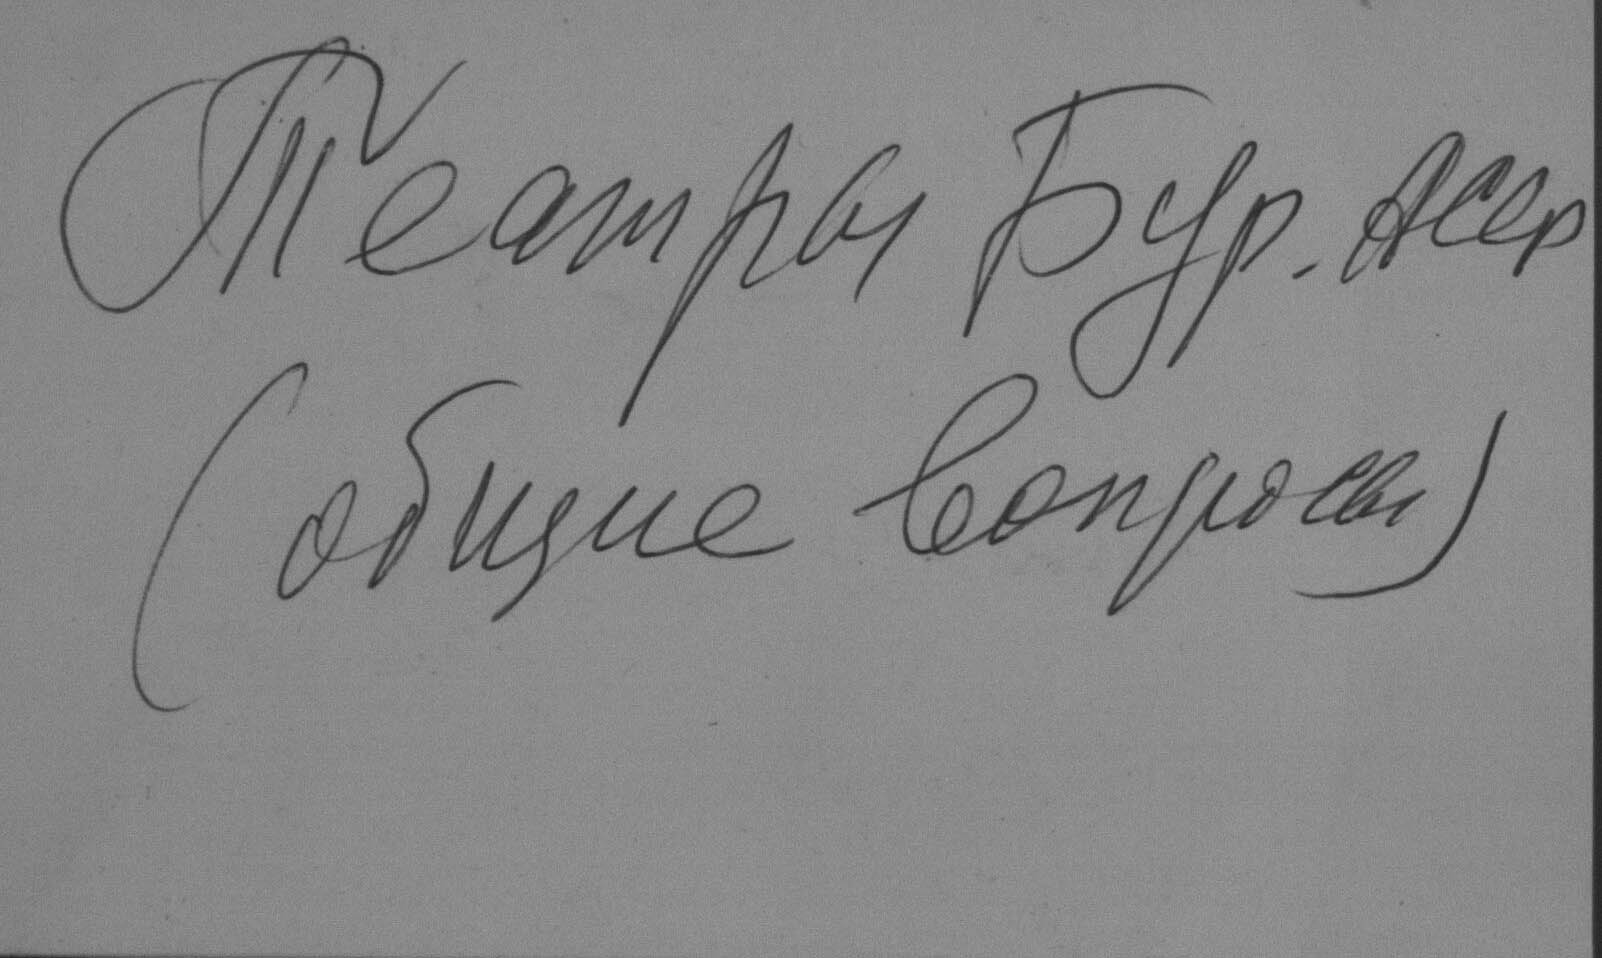 Театры Бур. АССР
(общие вопросы)